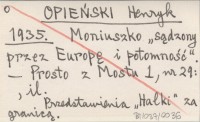 OPIEŃSKI Henryk
1935. Moniuszko „sądzony
przez Europę i potomność".
— Prosto z Mostu 1, nr 29:
, il.
Przedstawienia „Halki" za
granicą.